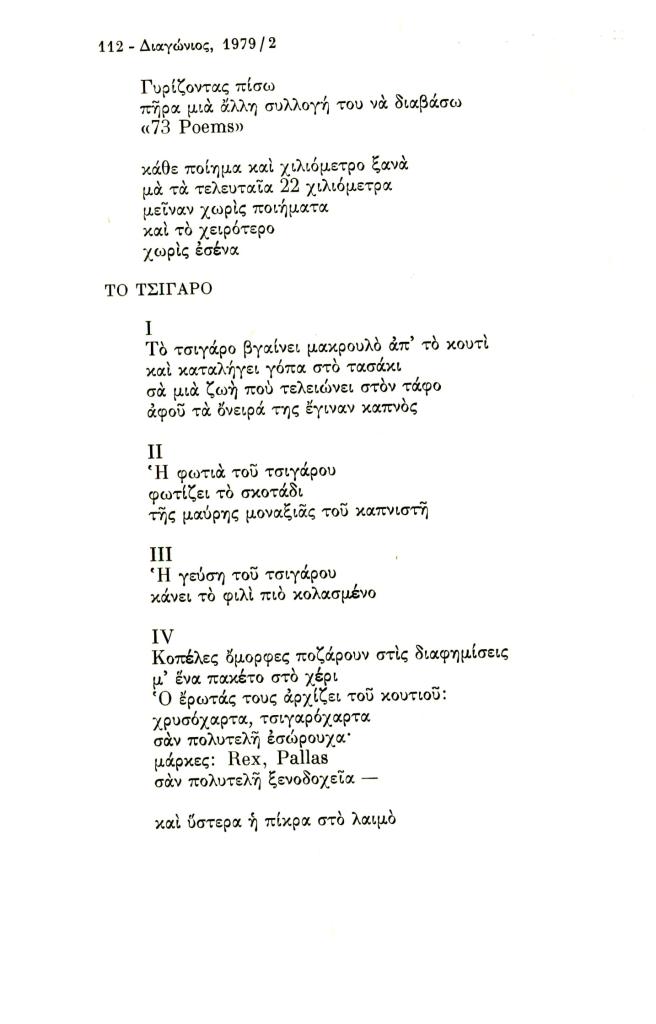 112 - Διαγώνιος, 1979/2
Γυρίζοντας πίσω
πῆρα μιὰ ἄλλη συλλογή του νὰ διαβάσω
«73 Poems»
κάθε ποίημα καὶ χιλιόμετρο ξανὰ
μὰ τὰ τελευταῖα 22 χιλιόμετρα
μεῖναν χωρὶς ποιήματα
καὶ τὸ χειρότερο
χωρὶς ἐσένα
ΤΟ ΤΣΙΓΑΡΟ
I
Τὸ τσιγάρο βγαίνει μακρουλὸ ἀπ' τὸ κουτὶ
καὶ καταλήγει γόπα στὸ τασάκι
σὰ μιὰ ζωὴ ποὺ τελειώνει στὸν τάφο
ἀφοῦ τὰ ὄνειρά της ἔγιναν καπνὸς
II
Ἡ φωτιὰ τοῦ τσιγάρου
φωτίζει τὸ σκοτάδι
τῆς μαύρης μοναξιᾶς τοῦ καπνιστῆ
III
Ἡ γεύση τοῦ τσιγάρου
κάνει τὸ φιλὶ πιὸ κολασμένο
IV
Κοπέλες ὄμορφες ποζάρουν στὶς διαφημίσεις
μ' ἕνα πακέτο στὸ χέρι
Ὁ ἔρωτάς τους ἀρχίζει τοῦ κουτιοῦ:
χρυσόχαρτα, τσιγαρόχαρτα
σὰν πολυτελῆ ἐσώρουχα·
μάρκες: Rex, Pallas
σὰν πολυτελῆ ξενοδοχεῖα —
καὶ ὕστερα ἡ πίκρα στὸ λαιμὸ